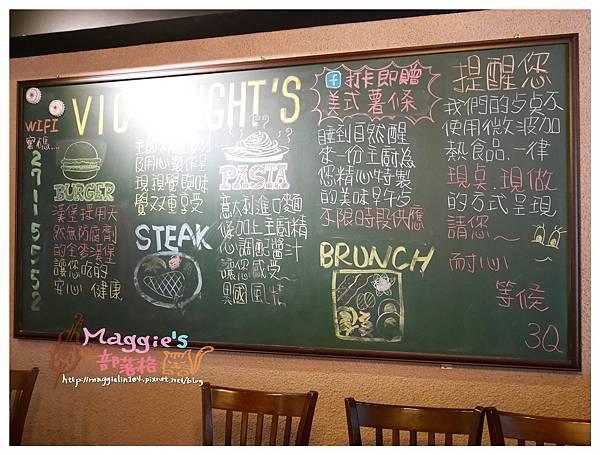 WIFI
密碼...
27115552
BURGER
漢堡採用天
然無防腐劑
的全麥漢堡
讓您吃的
安心 健康
用心製作呈
現視覺與味
覺雙重享受
STEAK
PASTA
意大利進口麵
條加上主廚精
心調配醬汁
讓您感受~
異國風情
f 打卡即贈
美式薯條
睡到自然醒
來一份主廚為
您精心特製
的美味早午点
不限時段供應
BRUNCH
提醒您
我們的点点不
使用微波加
熱食品.一律
現点.現做
的方式呈現
請您~
耐心
等候
3Q
Maggie's
部落格
http://maggielin104.pixnet.net/blog